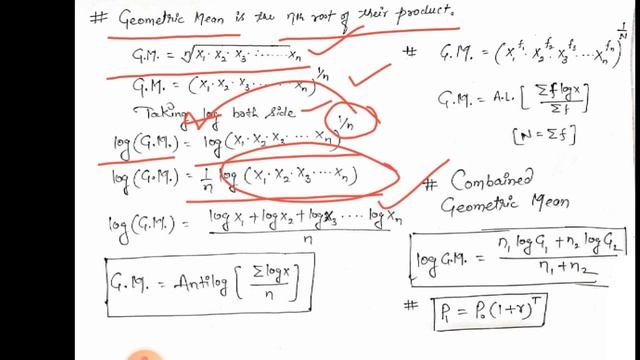 # Geometric Mean is the nth root of their product.
G.M. = ⁿ√x₁·x₂·x₃·.......xₙ
G.M. = (x₁·x₂·x₃.......xₙ)^1/n
Taking log both side
log(G.M.) = log(x₁·x₂·x₃.... xₙ)^1/n
log(G.M.) = 1/n log (x₁·x₂·x₃....xₙ)
log(G.M.) = (log x₁ + log x₂ + log x₃ .... log xₙ)/n
G.M. = Antilog [Σlogx/n]
# G.M. = (x₁^f₁·x₂^f₂·x₃^f₃....xₙ^fₙ)^1/N
G.M. = A.L. [Σf logx/Σf]
[N = Σf]
# Combained
Geometric Mean
log G.M. = (n₁ log G₁ + n₂ log G₂)/(n₁ + n₂)
# P₁ = P₀(1+r)^T